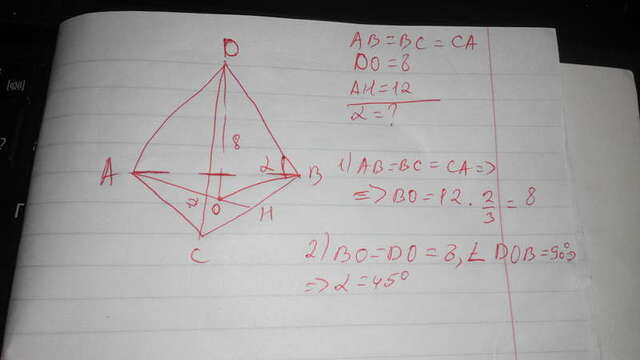 AB = BC = CA
DO = 8
AH = 12
α = ?
D
8
A
α
B
12
O
H
C
1) AB = BC = CA =>
=> BO = 12 · 2/3 = 8
2) BO = DO = 8, ∠ DOB = 90°
=> α = 45°